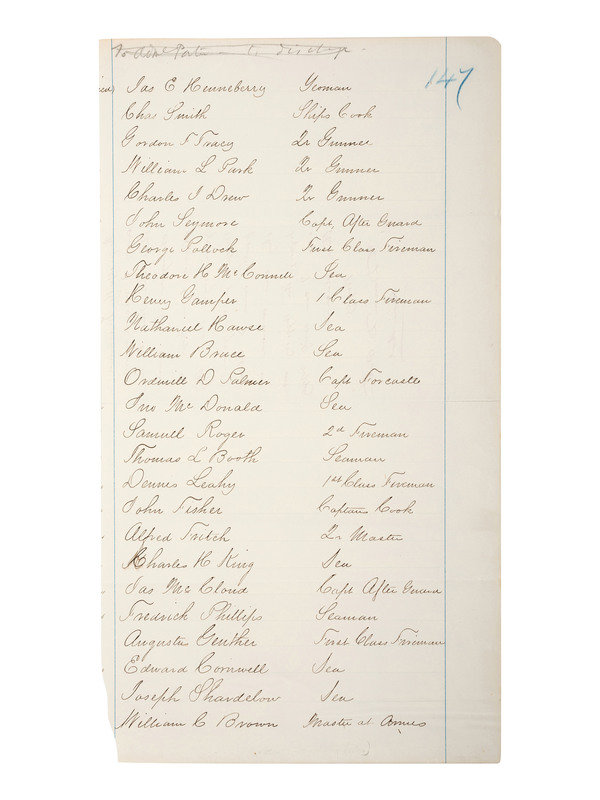 147
Jas E Henneberry Yeoman
Chas Smith Ships Cook
Gordon F Tracy Qr Gunner
William L Park Qr Gunner
Charles J Drew Qr Gunner
John Seymore Capt. After Guard
George Pollock First Class Fireman
Theodore H McConnell Sea
Henry Gamper 1 Class Fireman
Nathaniel Hawse Sea
William Bruce Sea
Ordwell D Palmer Capt Forcastle
Jno Mc Donald Sea
Samuel Roger 2d Fireman
Thomas L Booth Seaman
Dennes Leahy 1st Class Fireman
John Fisher Captains Cook
Alfred Fritch Qr Master
Charles H King Sea
Jas Mc Cloud Capt After Guard
Fredrick Phillips Seaman
Augustus Genther First Class Fireman
Edward Cornwell Sea
Joseph Shardelow Sea
William C Brown Master at Armes